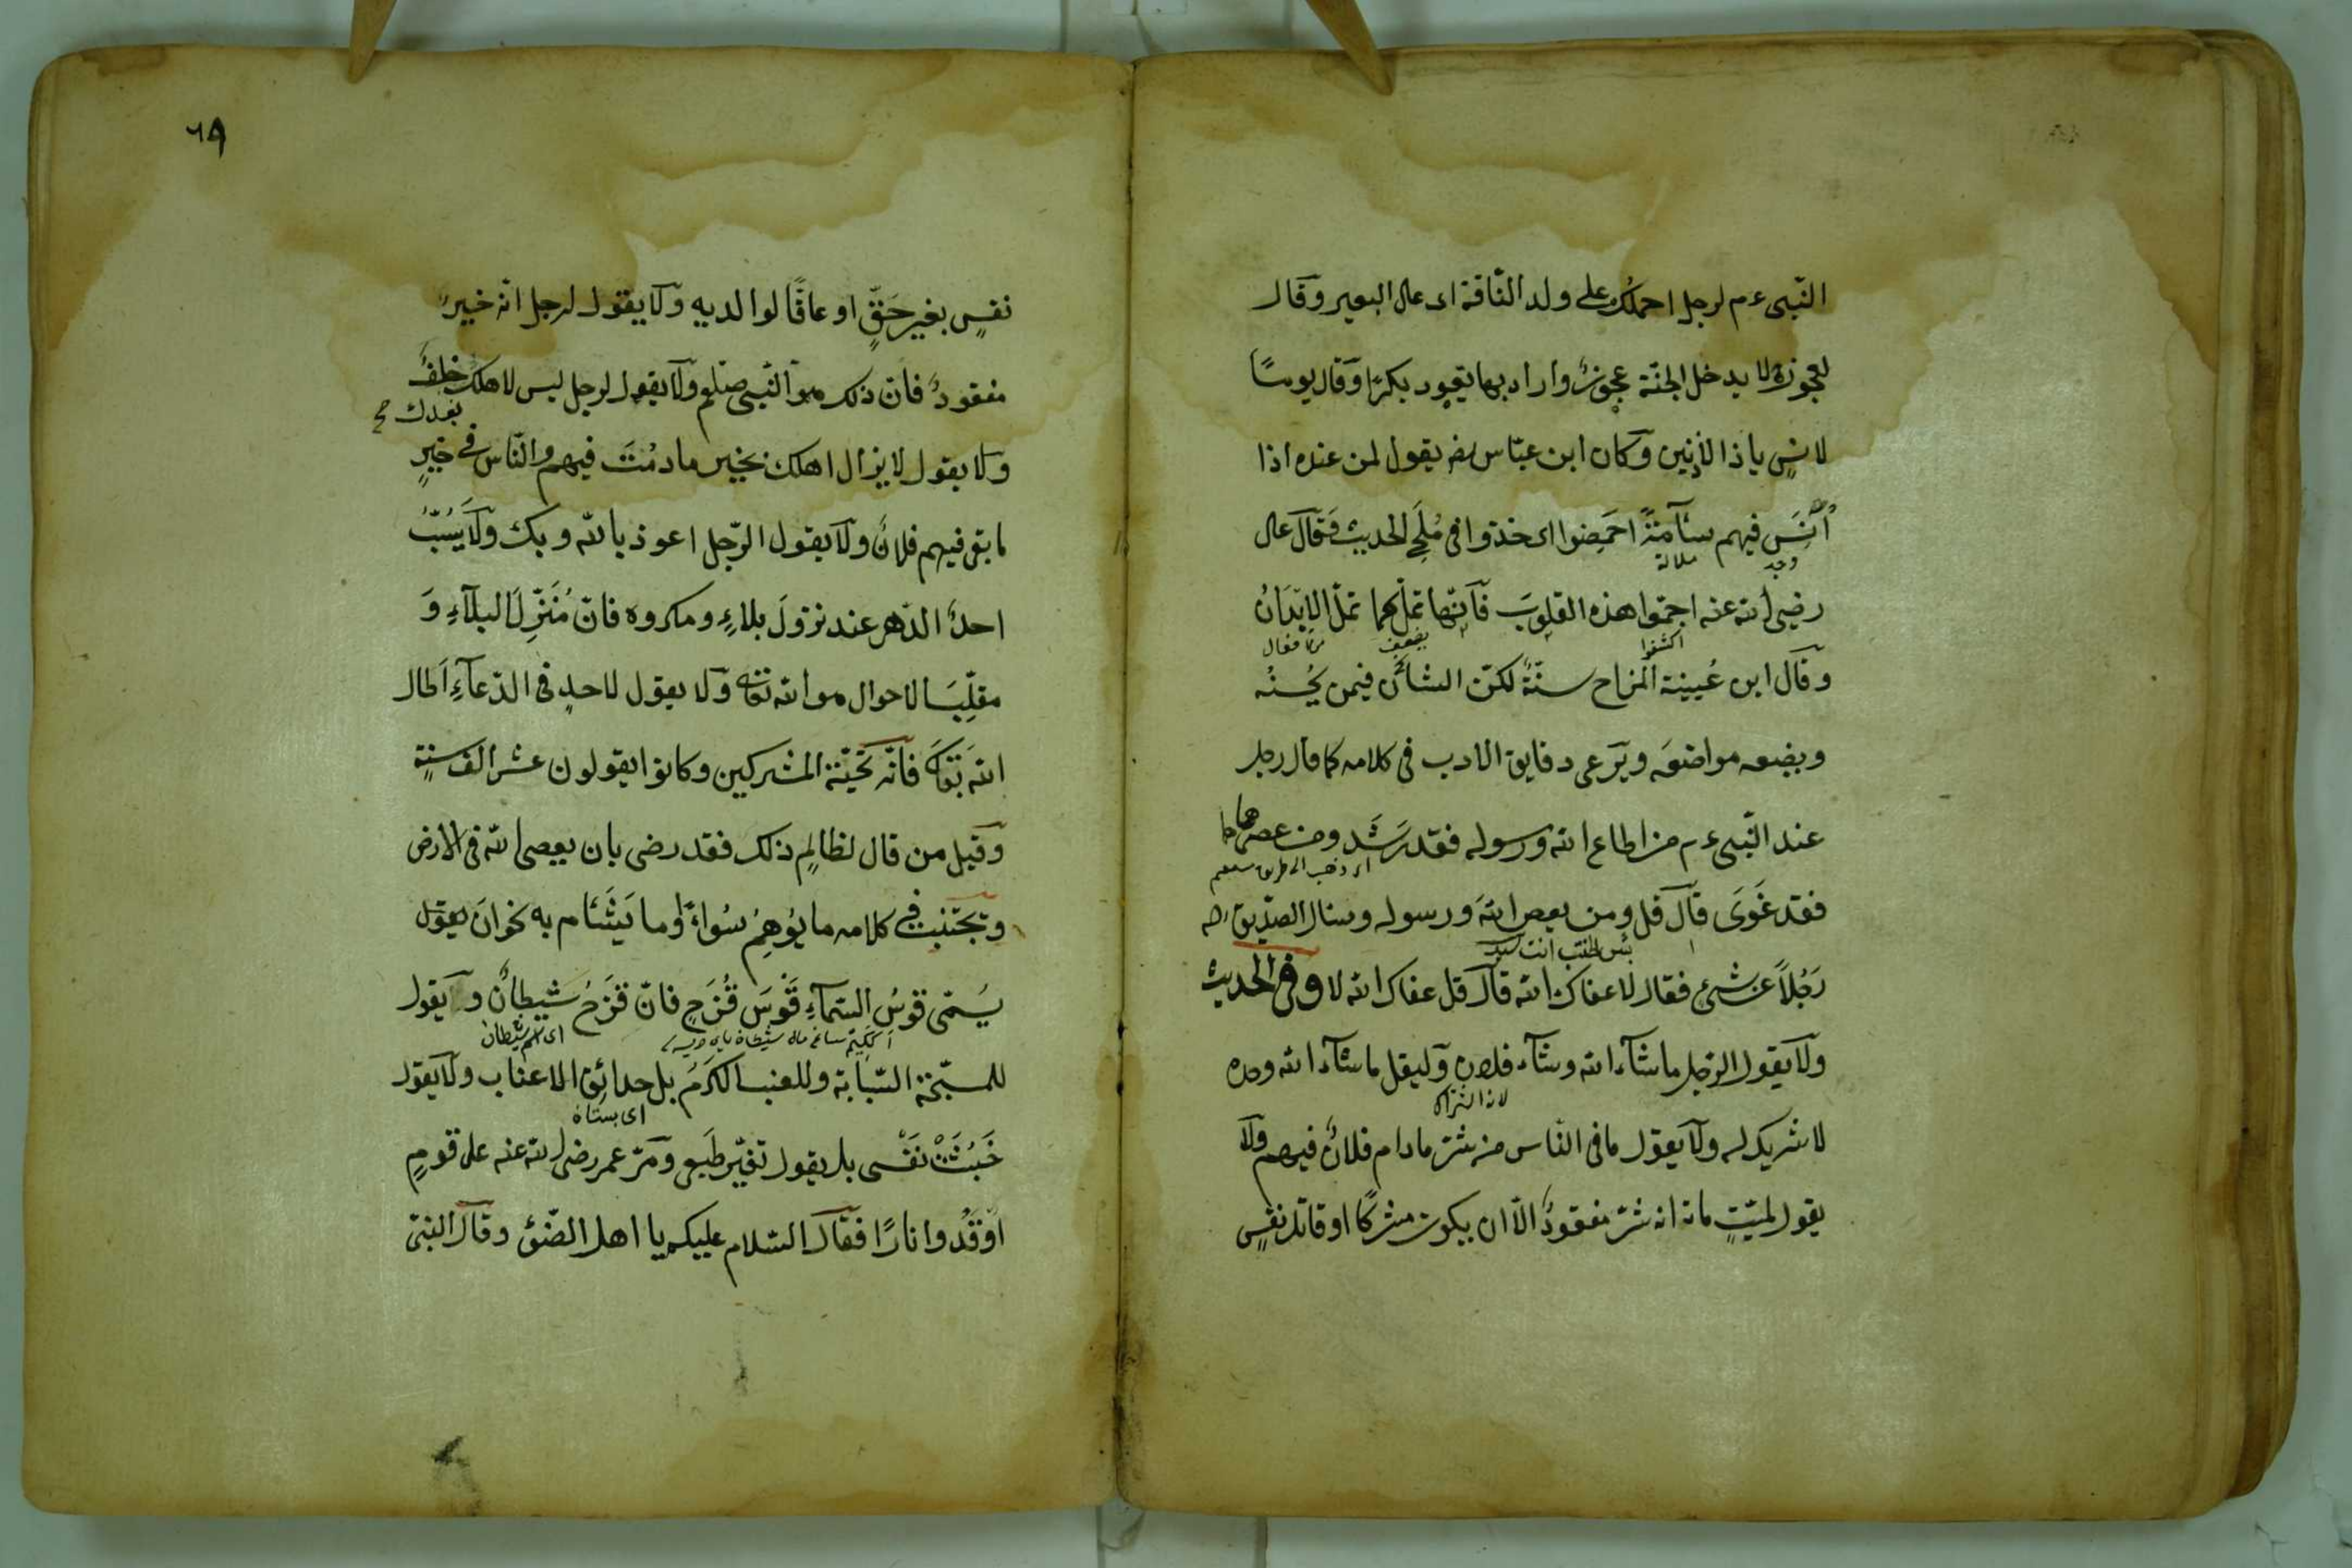 النّبى ءم لرجل احملك على ولد النّاقة اى على البعير وقال
لعجوزة لا يدخل الجنّة عجوزٌ واراد بها تعود بكرًا وقال يومًا
لانسٍ ياذا الاذنين وكان ابن عبّاس رضه يقول لمن عنده اذا
اٰنَسَ فيهم سئآمةً احمضوا اى خذوا فى مُلَحِ الحديث وقال على
وجد
ملالة
رضى الله عنه اجمّوا هذه القلوب فانّها تملّ كما تملّ الابدانُ
اكشفوا
يضعف
وقال ابن عُيينة المزاح سنّةٌ لكنّ الشأن فيمن يُحسنُه
ويضعه مواضعَه ويَرعى دقايق الادب فى كلامه كما قال رجل
عند النّبى ءم من اطاع الله ورسوله فقد رَشَد ومن عصىهما
اى ذهب الى طريق
فقد غَوَى قال قل ومن يعص اللهَ ورسوله وسئال الصدّيق رضه
بئس الخطيب انت
رَجُلاً عن شىءٍ فقال لا عفاك الله قال قل عفاك الله لا وفى الحديث
ولا يقول الرّجل ماشآء الله وشآء فلان وليقل ماشآء الله وحده
لا شريك له ولا يقول ما فى النّاس من شرّ مادام فلانٌ فيهم ولا
يقول لميّتٍ مات انه شرّ مفقودٌ الاّ ان يكون مشركًا او قاتل نفسٍ
٦٩
نفسٍ بغير حَقٍّ او عاقًا لوالديه ولا يقول لرجل انّه خيرُ
مفقودٌ فانّ ذلك هو النّبى صلعم ولا يقول لرجل ليس لاهلك خلفٌ
بعدك صح
ولا يقول لا يزال اهلك بخير مادمْتَ فيهم والنّاس فى خيرٍ
مابقى فيهم فلانٌ ولا يقول الرّجل اعوذ بالله وبك ولا يَسُبّ
احدٌ الدّهر عند نزول بلاءٍ ومكروه فانّ مُنَزّلَ البلآءِ وَ
مقلِّبَ الاحوال هو الله تعالى ولا يقول لاحدٍ فى الدّعآءِ اَطال
الله بقاك فانّه تحيّة المشركين وكانوا يقولون عشر الف سنةٍ
وقيل من قال لظالمٍ ذلك فقد رضى بان يعصى الله فى الارض
وتجتنب فى كلامه ما يُوهِمُ سُواءً وما يَتَشَئام به نحو ان يقول
يُسمّى قوسُ السّمآءِ قَوسَ قُزَحٍ فانّ قزَحُ شيطانٌ و يقول
اى اسم شيطان
للمسبّحة السّبّابة وللعنب الكَرَمُ بل حدائق الاعناب ولا يقول
اى بستان
خَبُثَتْ نَفْسى بل يقول تغيّر طَبعى ومرّ عمر رضى الله عنه على قومٍ
اَوقَدُوا نارًا فقال السّلام عليكم يا اهل الضّوْء وقال النبىّ